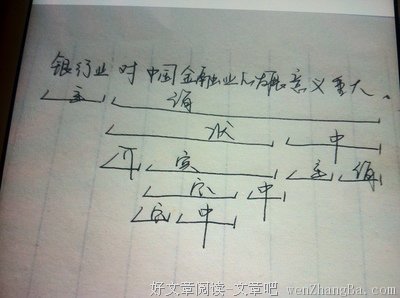 银行业对中国金融业发展意义重大。
主 谓
状 中
介 宾 主 谓
定 中
定 中
好文章阅读-文章吧 wenZhangBa.com